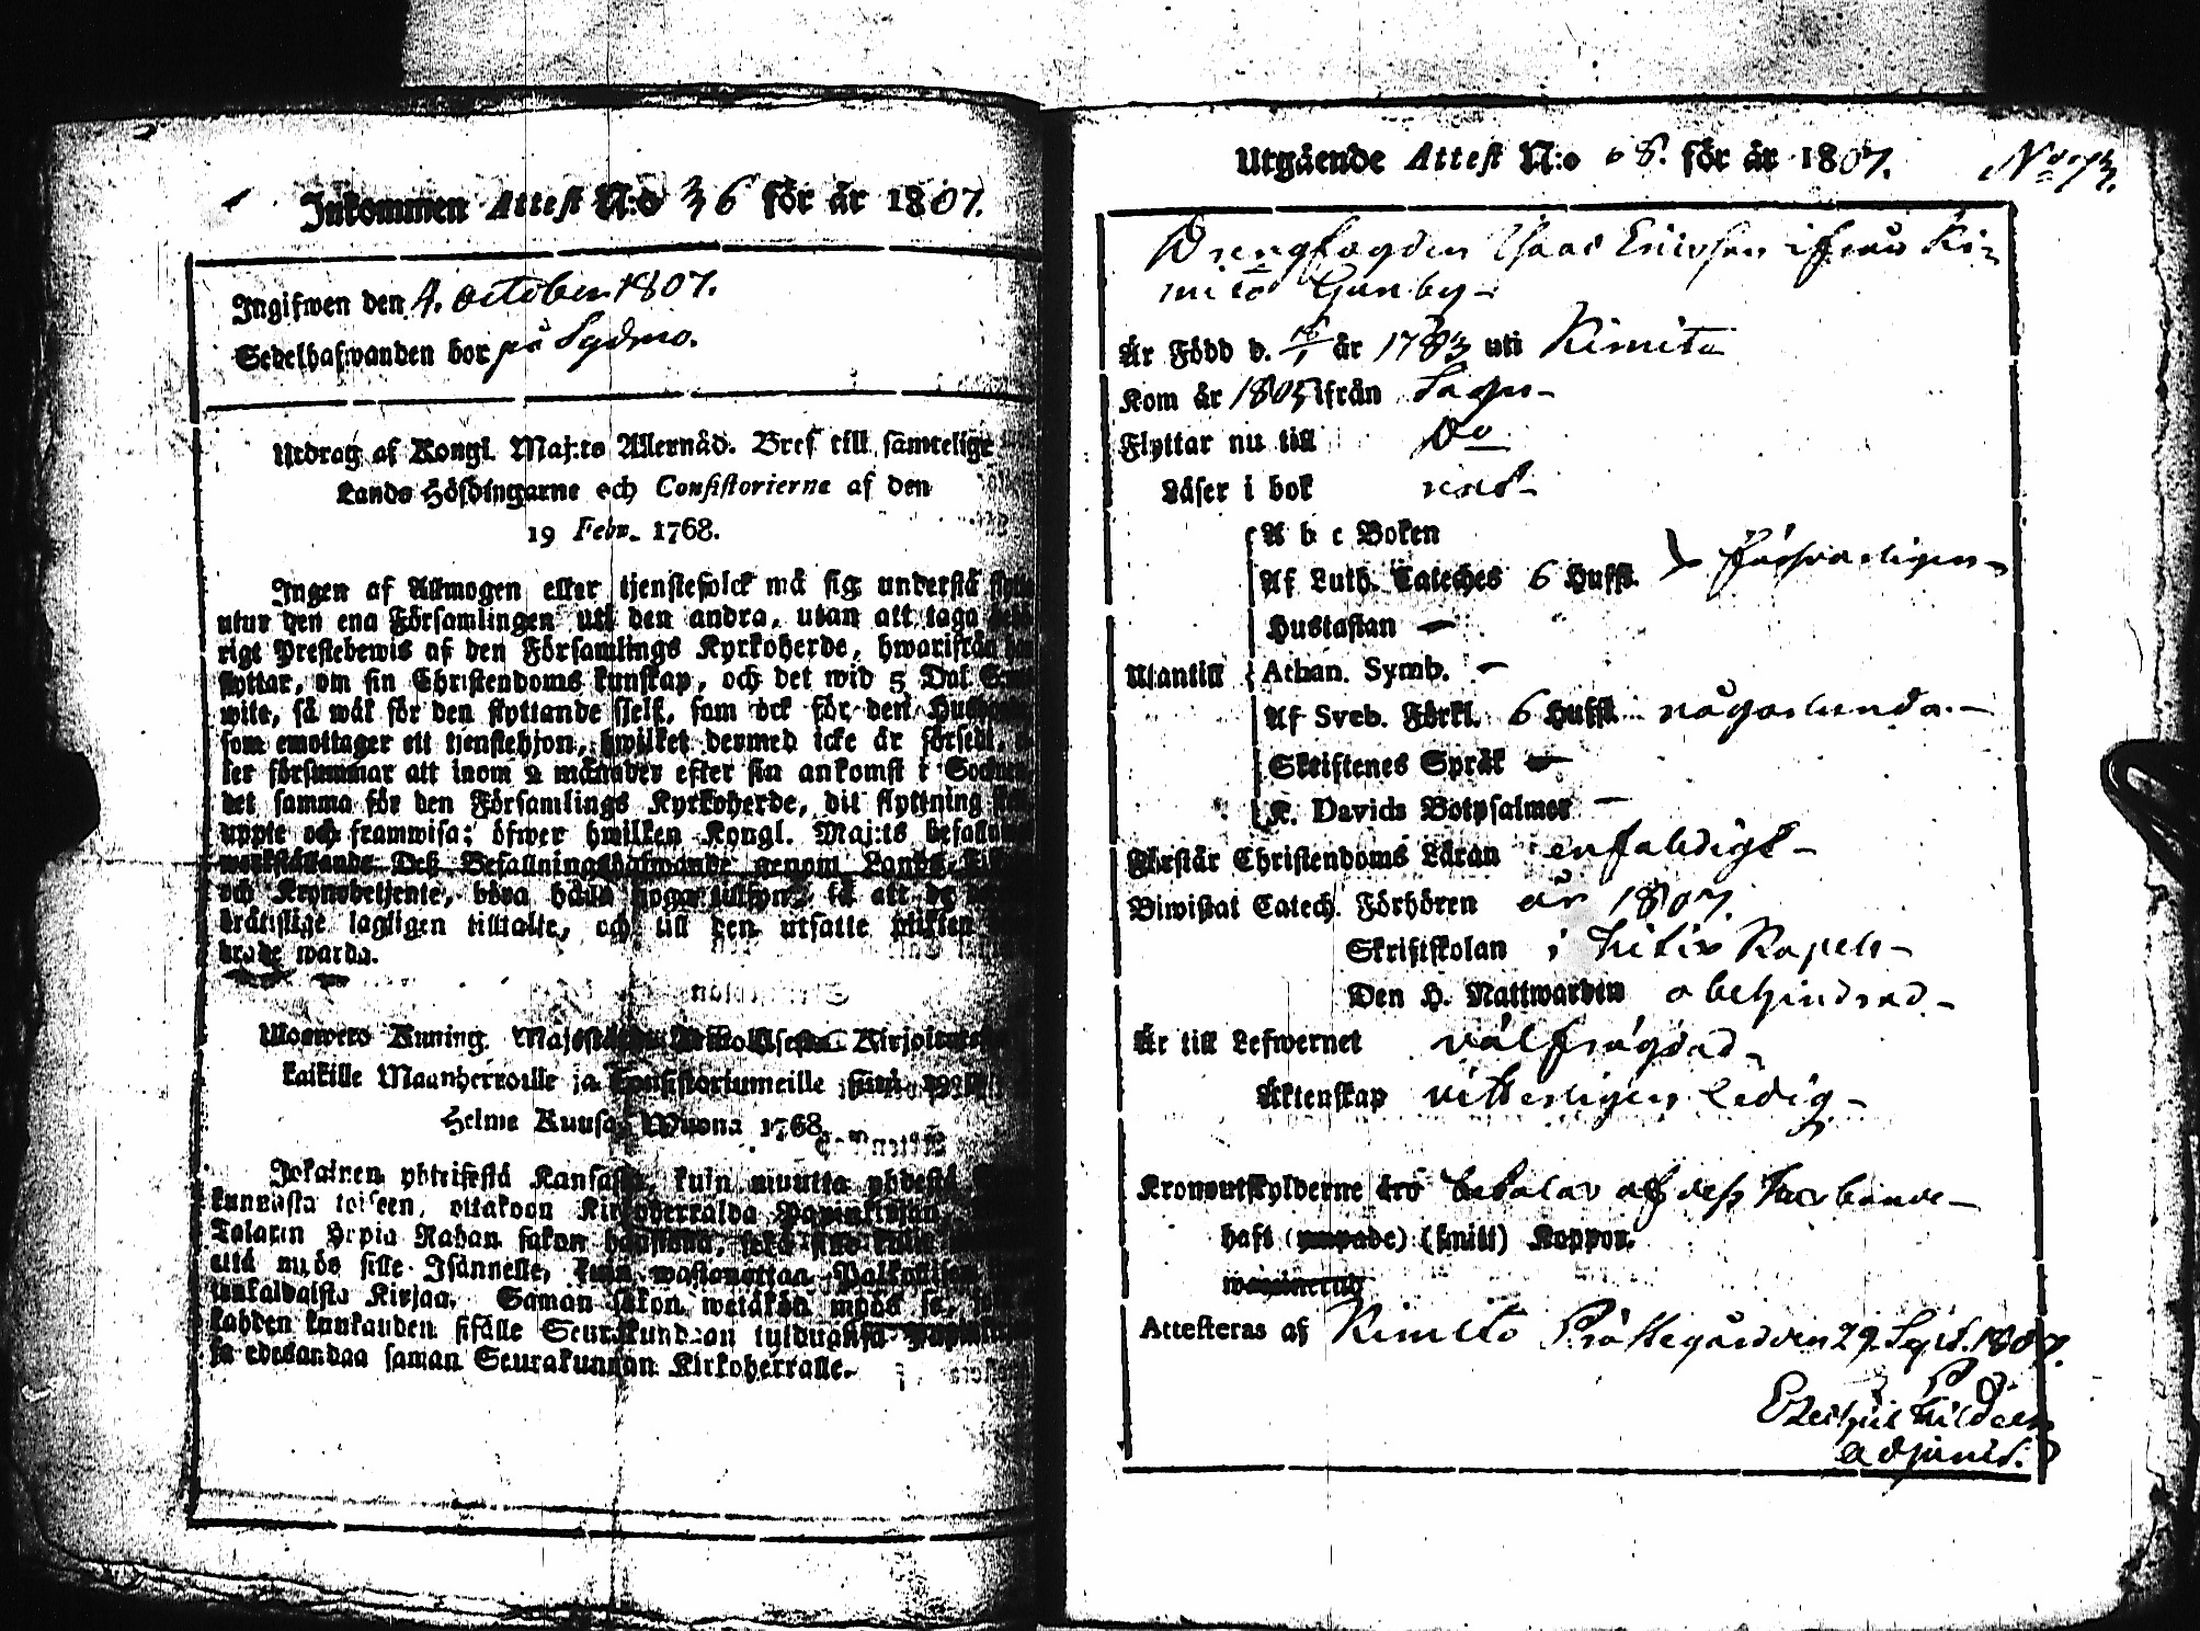 Inkommen Attest N:o 36 för år 1807.
Ingifwen den 4. october 1807.
Sedelhafwanden bor på Sydmo.
Utdrag af Kongl. Maj:ts Allernåd. Bref till samtelige
Lands Höfdingarne och Consistorierne af den
19 Febr. 1768.
Ingen af Allmogen eller tjenstefolck må sig understå
utur den ena Församlingen uti den andra, utan att taga
rigt Prestebewis af den Församlings Kyrkoherde, hwarifrån
flyttar, om sin Christendoms kunskap, och det wid 5 Dal.
wite, så wäl för den flyttande sjelf, som ock för den
som emottager ett tjenstehjon, hwilket dermed icke är försedt,
ler försummar att inom 2 månader efter sin ankomst i
det samma för den Församlings Kyrkoherde, dit flyttning
uppte och framwisa; öfwer hwilken Kongl. Maj:ts
Befallningshafwande genom Lands
och Kronobetjente, böra hålla noga tillsyn, så att de
brätslige lagligen tilltalte, och till den utsatte plikten
warda.
Kuning. Kirjoitus
kaikille Maanherroille ja Consistoriumeille
Helme Kuusa Wuona 1768.
Jokainen yhteisestä kuin muutta yhdestä
kunnasta toiseen, ottakoon Kirkoherralda
Talarin Hopia Rahan sakon
että myös sille Isännelle, kuin wastanottaa
Kirjaa. Saman sakon wetäkön myös se,
kahden kuukauden sisälle Seurakundaan tulduansa
ja edesandaa saman Seurakunnan Kirkoherralle.
Utgående Attest N:o 68. för år 1807. No 73.
Drengfogden Isaac Ericsson ifrån Ki-
mito Gunby
Är Född d. år 1783 uti Kimito
Kom år 1805 ifrån Sagu
Flyttar nu till Do
Läser i bok
A b c Boken
Af Luth. Cateches 6 Hufst. försvarligen
Hustaflan
Utantill Athan. Symb.
Af Sveb. Förkl. 6 Hufst. någorlunda.
Skriftenes Språk
K. Davids Botpsalmer
Förstår Christendoms Läran enfaldigt
Biwistat Catech. Förhören år 1807.
Skriftskolan i Kapell
Den H. Nattwarden obehindrad
Är till Lefwernet välfrägdad
Äktenskap vitterligen ledig
Kronoutskylderne äro betalar af dess
haft (smitt) Koppor.
Attesteras af Kimito Prästegård den 29. Sept. 1807.
adjunct.